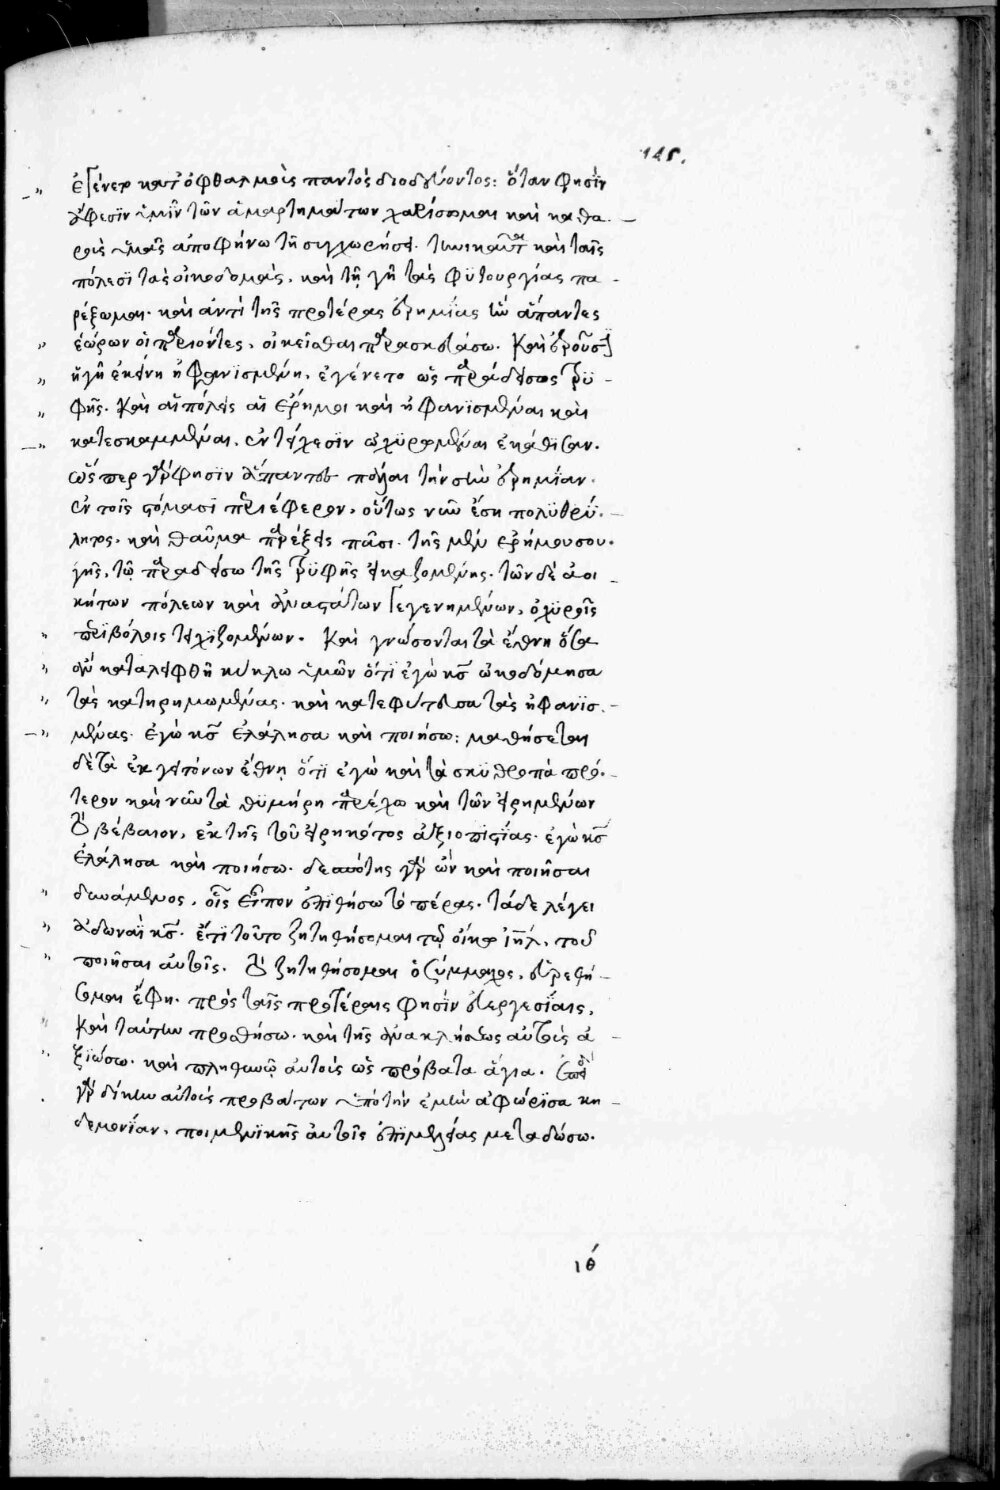 145.
ἐγένετο κατ' ὀφθαλμοὺς παντὸς διοδεύοντος: ὅταν φησὶν
ἄφεσιν ὑμῖν τῶν ἁμαρτημάτων χαρίσωμαι καὶ καθα
ροὺς ὑμᾶς ἀποφήνω τῇ συγχωρήσει. τηνικαῦτα καὶ ταῖς
πόλεσι τὰς οἰκοδομὰς, καὶ τῇ γῇ τὰς φυτουργίας πα
ρέξωμαι. καὶ ἀντὶ τῆς προτέρας ἐρημίας ἣν ἅπαντες
ἑώρων οἱ παριόντες, οἰκεῖσθαι παρασκευάσω. Καὶ ἐροῦσιν
ἡ γῆ ἐκείνη ἡ ἠφανισμένη, ἐγένετο ὡς παράδεισος τρυ
φῆς. Καὶ αἱ πόλεις αἱ ἔρημοι καὶ ἠφανισμέναι καὶ
κατεσκαμμέναι, ἐν τείχεσιν ὠχυρωμέναι ἐκάθισαν.
ὥσπερ γάρ φησιν ἅπαντες πάλαι τὴν σὴν ἐρημίαν
ἐν τοῖς στόμασι περιέφερον, οὕτως νῦν ἔσῃ πολυθρύ
λητος. καὶ θαῦμα παρέξεις πᾶσι. τῆς μὲν ἐρήμου σου
γῆς, τῷ παραδείσῳ τῆς τρυφῆς εἰκαζομένης. τῶν δὲ ἀοι
κήτων πόλεων καὶ ἀναστάτων γεγενημένων, ὀχυροῖς
περιβόλοις τειχιζομένων. Καὶ γνώσονται τὰ ἔθνη ὅσα
ἂν καταλειφθῇ κύκλῳ ὑμῶν ὅτι ἐγὼ κς ᾠκοδόμησα
τὰς κατηρημωμένας. καὶ κατεφύτευσα τὰς ἠφανισ
μένας. ἐγὼ κς ἐλάλησα καὶ ποιήσω: μαθήσεται
δὲ τὰ ἐκ γειτόνων ἔθνη ὅτι ἐγὼ καὶ τὰ σκυθρωπὰ πρό
τερον καὶ νῦν τὰ θυμήρη παρέχω καὶ τῶν εἰρημένων
τὸ βέβαιον, ἐκ τῆς τοῦ εἰρηκότος ἀξιοπιστίας. ἐγὼ κς
ἐλάλησα καὶ ποιήσω. δεσπότης γὰρ ὢν καὶ ποιῆσαι
δυνάμενος, οἷς εἶπον ἐπιθήσω τὸ πέρας. τάδε λέγει
ἀδωναῒ κς. ἔτι τοῦτο ζητηθήσομαι τῷ οἴκῳ ἰηλ, τοῦ
ποιῆσαι αὐτοῖς. τὸ ζητηθήσομαι ὁ Σύμμαχος, εὑρεθή
σομαι ἔφη. πρὸς ταῖς προτέραις φησὶν εὐεργεσίαις,
καὶ ταύτην προσθήσω. καὶ τῆς ἀνακλήσεως αὐτοὺς ἀ
ξιώσω. καὶ πληθυνῶ αὐτοὺς ὡς πρόβατα ἅγια.
γὰρ δίκην αὐτοὺς προβάτων ὑπὸ τὴν ἐμὴν ἀφώρισα κη
δεμονίαν, ποιμενικῆς αὐτοῖς ἐπιμελείας μεταδώσω.
ιθ